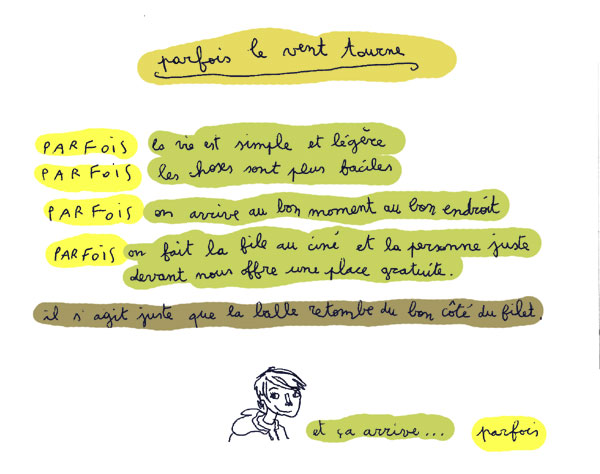 parfois le vent tourne
PARFOIS la vie est simple et légère
PARFOIS les hoses sont plus faciles
PARFOIS on arrive au bon moment au bon endroit
PARFOIS on fait la file au ciné et la personne juste
devant nous offre une place gratuite.
il s'agit juste que la balle retombe du bon côté du filet.
et ça arrive... parfois